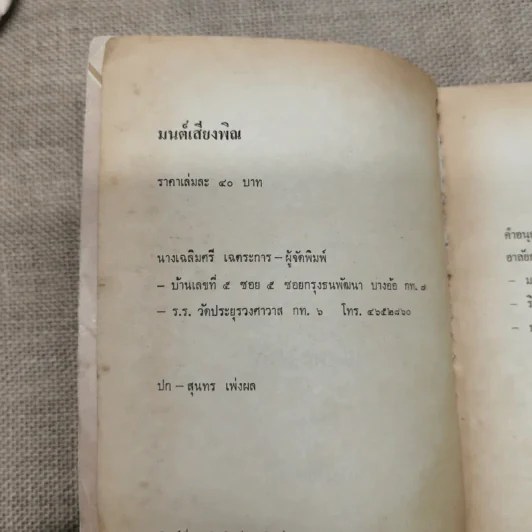 มนต์เสียงพิณ
ราคาเล่มละ ๔๐ บาท
นางเฉลิมศรี เฉตระการ – ผู้จัดพิมพ์
– บ้านเลขที่ ๕ ซอย ๕ ซอยกรุงธนพัฒนา บางอ้อ กท. ๗
– ร.ร. วัดประยุรวงศาวาส กท. ๖ โทร. ๔๖๕๒๘๖๐
ปก – สุนทร เพ่งผล